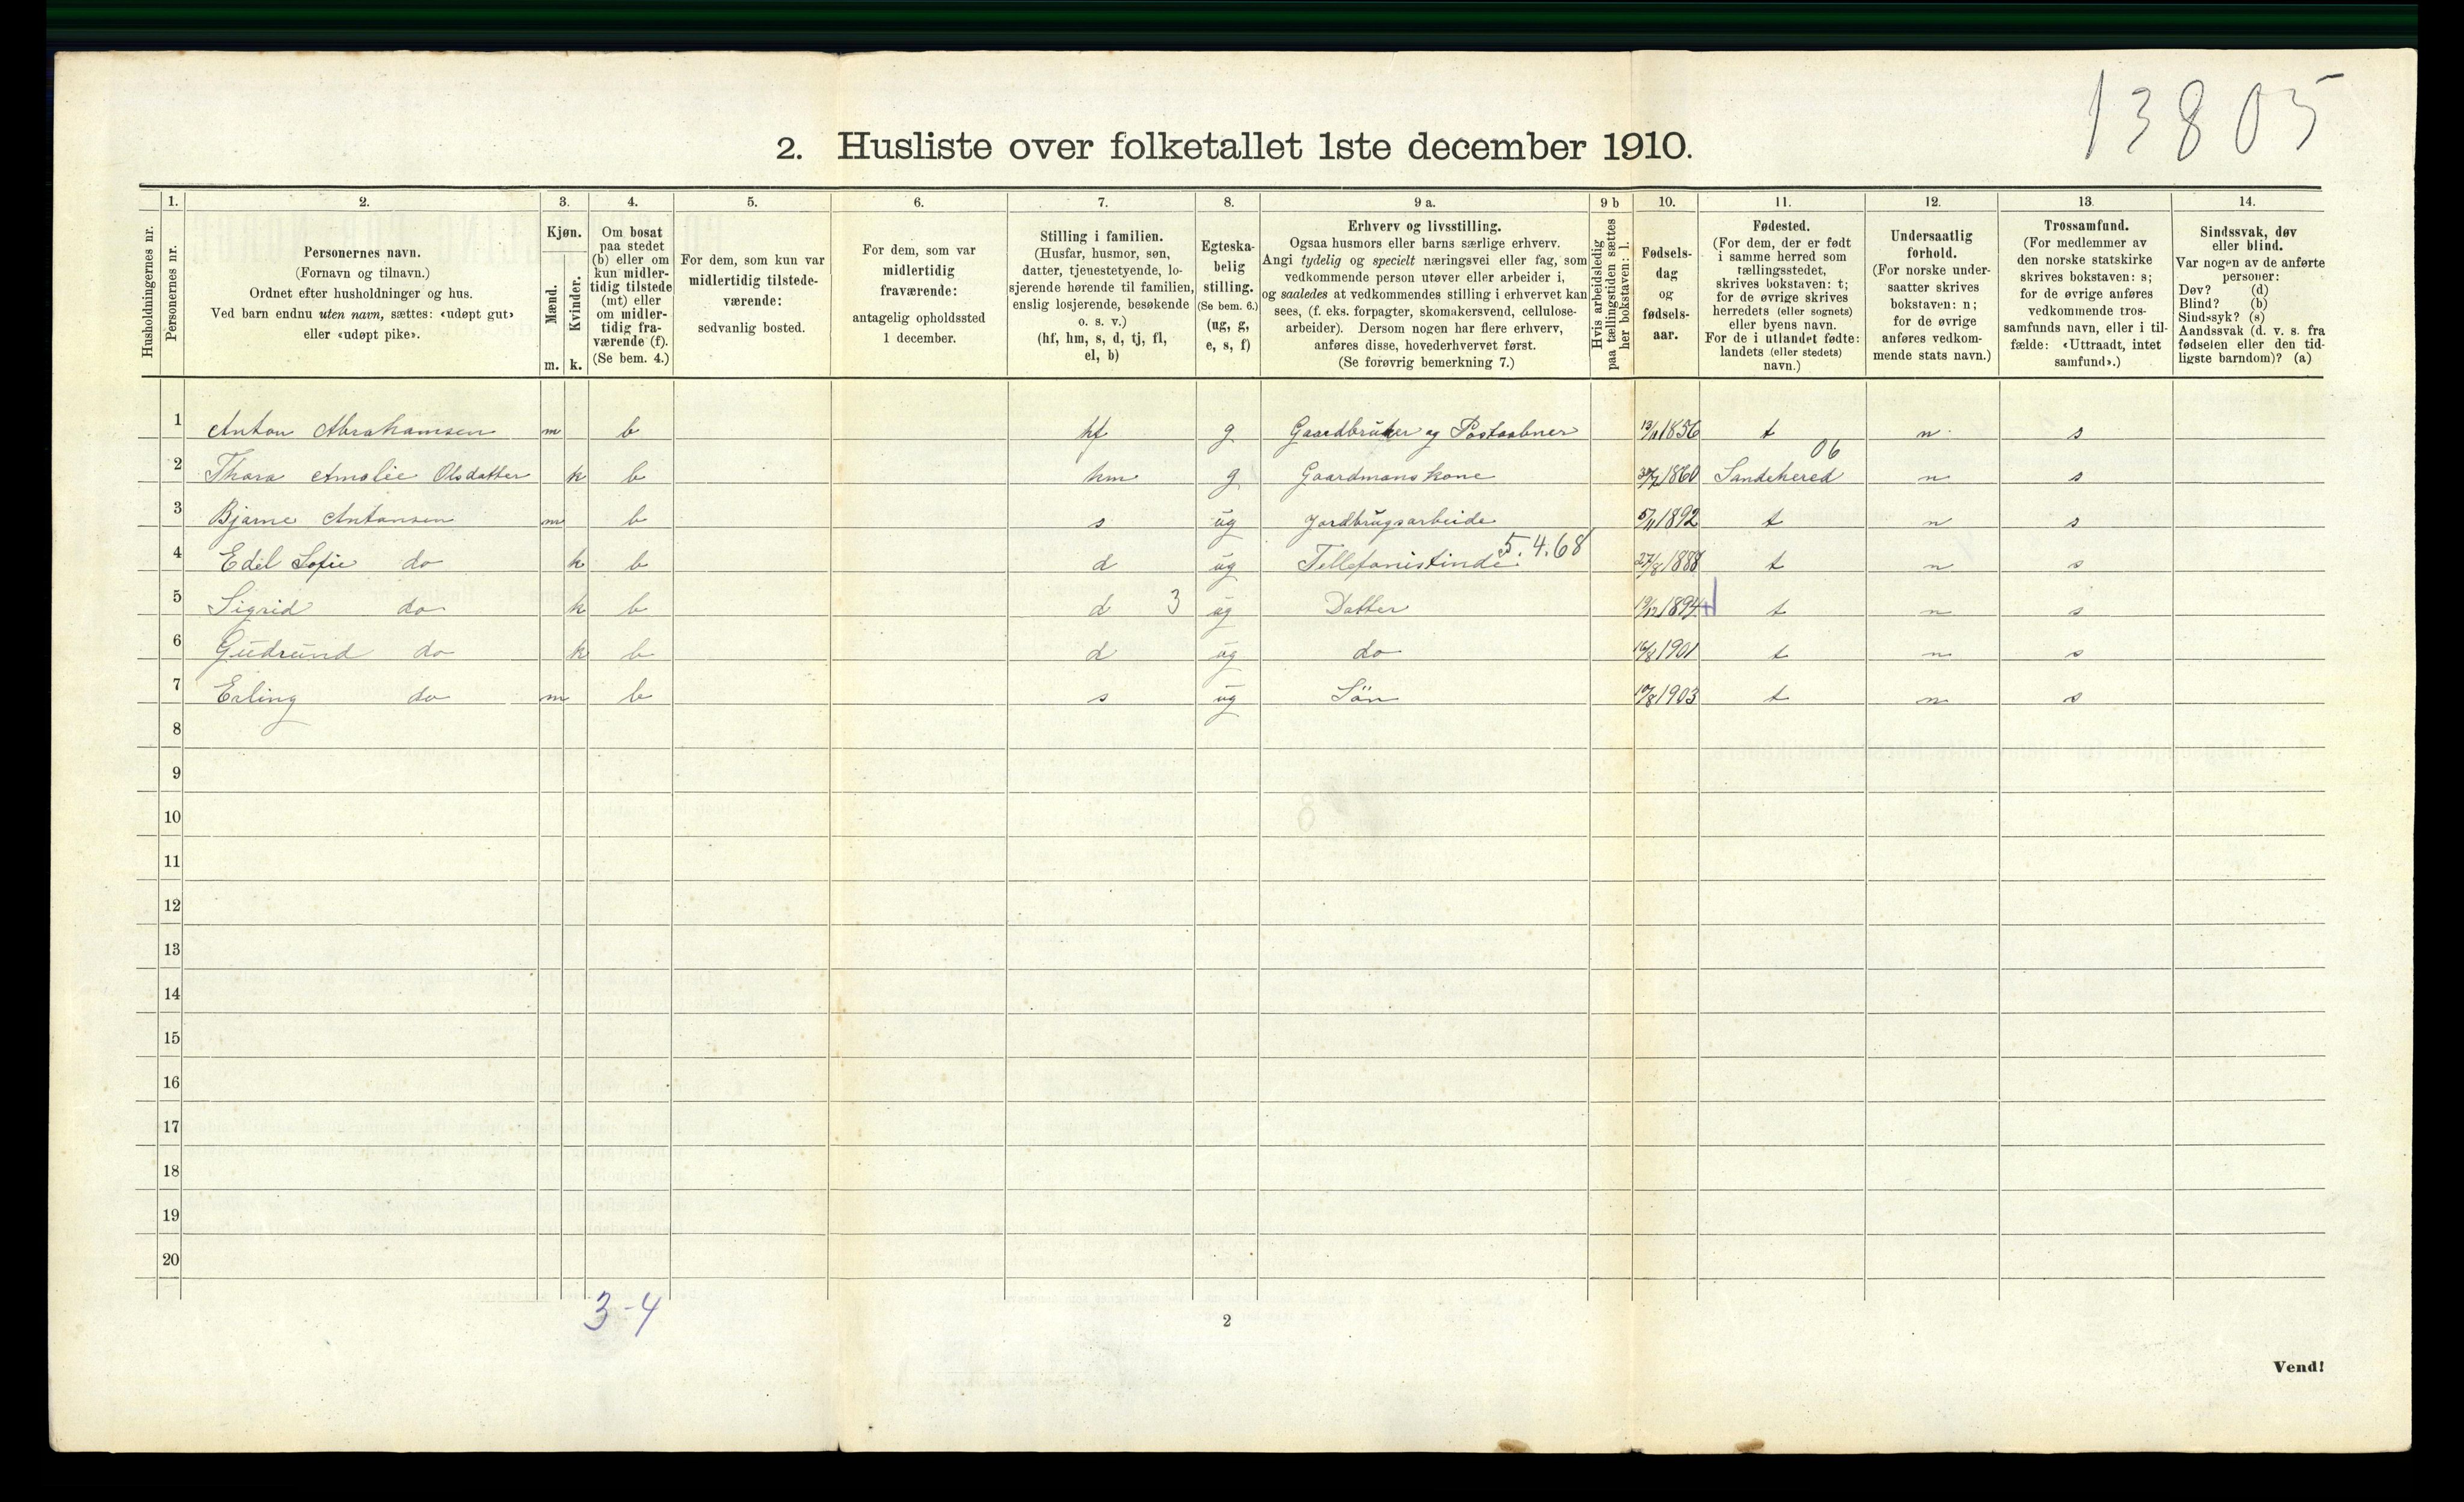 13805
2. Husliste over folketallet 1ste december 1910.
Husholdningernes nr.
1.
Personernes nr.
2.
Personernes navn.
(Fornavn og tilnavn.)
Ordnet efter husholdninger og hus.
Ved barn endnu uten navn, sættes: «udøpt gut»
eller «udøpt pike».
3.
Kjøn.
Mænd.
Kvinder.
m. k.
4.
Om bosat
paa stedet
(b) eller om
kun midler-
tidig tilstede
(mt) eller
om midler-
tidig fra-
værende (f).
(Se bem. 4.)
5.
For dem, som kun var
midlertidig tilstede-
værende:
sedvanlig bosted.
6.
For dem, som var
midlertidig
fraværende:
antagelig opholdssted
1 december.
7.
Stilling i familien.
(Husfar, husmor, søn,
datter, tjenestetyende, lo-
sjerende hørende til familien,
enslig losjerende, besøkende
o. s. v.)
(hf, hm, s, d, tj, fl,
el, b)
8.
Egteska-
belig
stilling.
(Se bem. 6.)
(ug, g,
e, s, f)
9 a.
Erhverv og livsstilling.
Ogsaa husmors eller barns særlige erhverv.
Angi tydelig og specielt næringsvei eller fag, som
vedkommende person utøver eller arbeider i,
og saaledes at vedkommendes stilling i erhvervet kan
sees, (f. eks. forpagter, skomakersvend, cellulose-
arbeider). Dersom nogen har flere erhverv,
anføres disse, hovederhvervet først.
(Se forøvrig bemerkning 7.)
9 b
Hvis arbeidsledig
paa tællingstiden sættes
her bokstaven: l.
10.
Fødsels-
dag
og
fødsels-
aar.
11.
Fødested.
(For dem, der er født
i samme herred som
tællingsstedet,
skrives bokstaven: t;
for de øvrige skrives
herredets (eller sognets)
eller byens navn.
For de i utlandet fødte:
landets (eller stedets)
navn.)
12.
Undersaatlig
forhold.
(For norske under-
saatter skrives
bokstaven: n;
for de øvrige
anføres vedkom-
mende stats navn.)
13.
Trossamfund.
(For medlemmer av
den norske statskirke
skrives bokstaven: s;
for de øvrige anføres
vedkommende tros-
samfunds navn, eller i til-
fælde: «Uttraadt, intet
samfund».)
14.
Sindssvak, døv
eller blind.
Var nogen av de anførte
personer:
Døv? (d)
Blind? (b)
Sindssyk? (s)
Aandssvak (d. v. s. fra
fødselen eller den tid-
ligste barndom)? (a)
1 Anton Abrahamsen m b hf g Gaardbruker og Postaabner 1856 t n s
06
2 Thora Amalie Olsdatter k b hm g Gaardmanskone 1860 Sandehered n s
3 Bjarne Antonsen m b s ug Jordbrugsarbeide 5/11 1892 t n s
5.4.68
4 Edel Sofie do k b d ug Tellefonistinde 27/8 1888 t n s
5 Sigrid do k b d 3 ug Datter 19/12 1894 t n s
6 Gudrund do k b d ug do 16/8 1901 t n s
7 Erling do m b s ug Sön 1903 t n s
8
9
10
11
12
13
14
15
16
17
18
19
20
3-4
2
Vend!